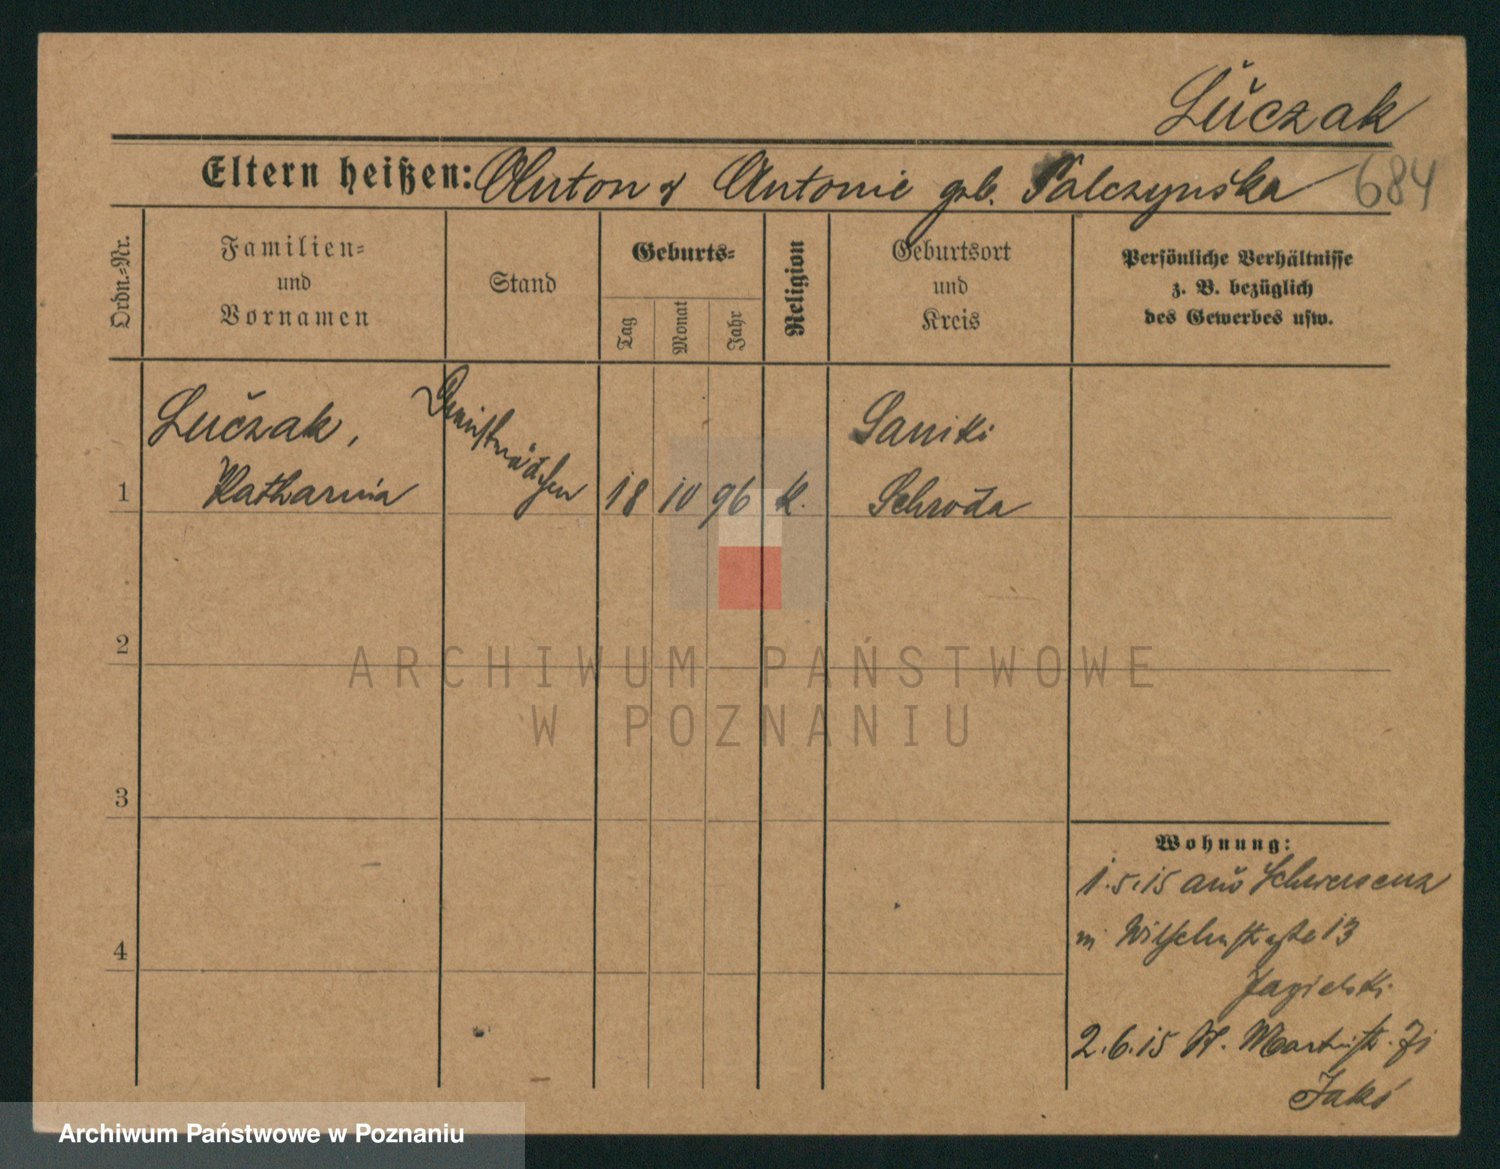 Łuczak
Eltern heißen: Anton & Antonie geb. Palczynska 684
Ordn.-Nr.
Familien-
und
Vornamen
Stand
Geburts-
Tag
Monat
Jahr
Religion
Geburtsort
und
Kreis
Persönliche Verhältnisse
z. B. bezüglich
des Gewerbes usw.
Łuczak,
Dienstmädchen
Saniki
1 Katharina 18 10 96 K. Schroda
2
3
4
Wohnung:
1.5.15 aus Schwersenz
13
Jagielski
2.6.15 St. Martinstr.
ARCHIWUM PAŃSTWOWE
W POZNANIU
Archiwum Państwowe w Poznaniu